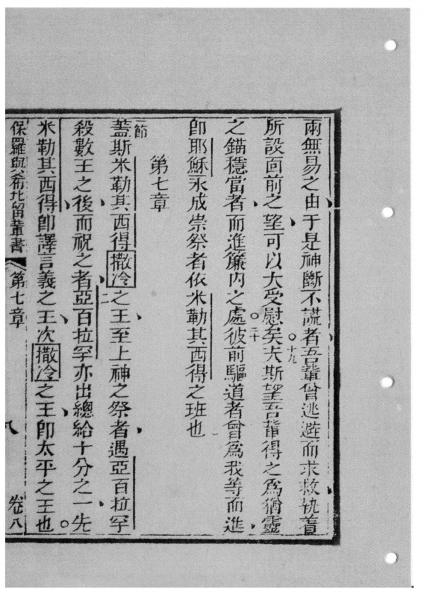 兩無易之由于是神斷不謊者吾輩曾逃避而求救執着
所設面前之望可以大受慰矣夫斯望吾輩得之為猶靈
十九
之錨穩當者而進簾內之處彼前驅道者曾為我等而進
二十
卽耶穌永成崇祭者依米勒其西得之班也
第七章
一節
蓋斯米勒其西得撒冷之王至上神之祭者遇亞百拉罕
殺數王之後而祝之者亞百拉罕亦出總給十分之一先
二
米勒其西得卽譯言義之王次撒冷之王卽太平之王也
保羅與希比留輩書 第七章 八 卷八